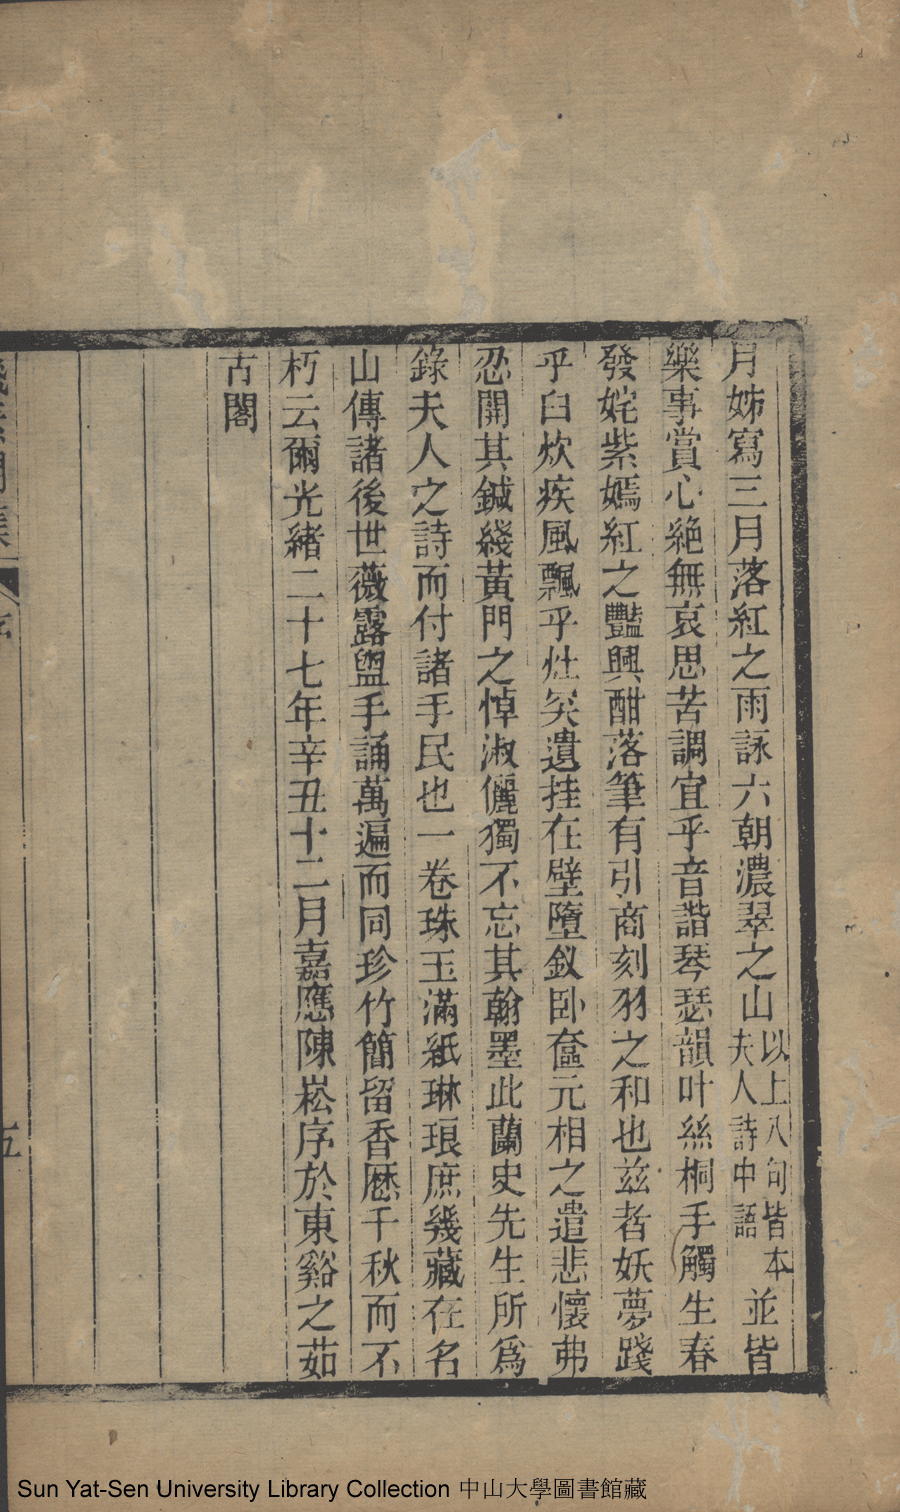 月姊寫三月落紅之雨詠六朝濃翠之山以上八句皆本夫人詩中語並皆
樂事賞心絶無哀思苦調宜乎音諧琴瑟韻叶絲桐手觸生春
發姹紫嫣紅之豔興酣落筆有引商刻羽之和也兹者妖夢踐
乎臼炊疾風飄乎灶突遺挂在壁墮釵卧奩元相之遣悲懷弗
忍開其鍼綫黃門之悼淑儷獨不忘其翰墨此蘭史先生所爲
錄夫人之詩而付諸手民也一卷珠玉滿紙琳琅庶幾藏在名
山傳諸後世薇露盥手誦萬遍而同珍竹簡留香厯千秋而不
朽云爾光緒二十七年辛丑十二月嘉應陳崧序於東谿之茹
古閣
五
Sun Yat-Sen University Library Collection 中山大學圖書館藏